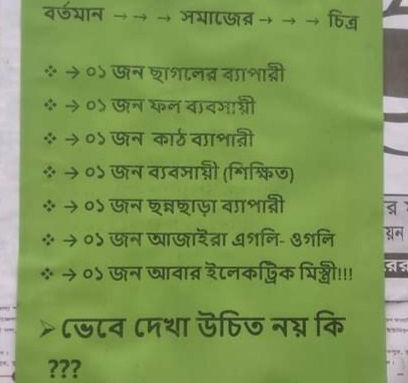 বর্তমান → → → সমাজের → → → চিত্র
❖ → ০১ জন ছাগলের ব্যাপারী
❖ → ০১ জন ফল ব্যবসায়ী
❖ → ০১ জন কাঠ ব্যাপারী
❖ → ০১ জন ব্যবসায়ী (শিক্ষিত)
❖ → ০১ জন ছন্নছাড়া ব্যাপারী
❖ → ০১ জন আজাইরা এগলি- ওগলি
❖ → ০১ জন আবার ইলেকট্রিক মিস্ত্রী!!!
➢ ভেবে দেখা উচিত নয় কি
???